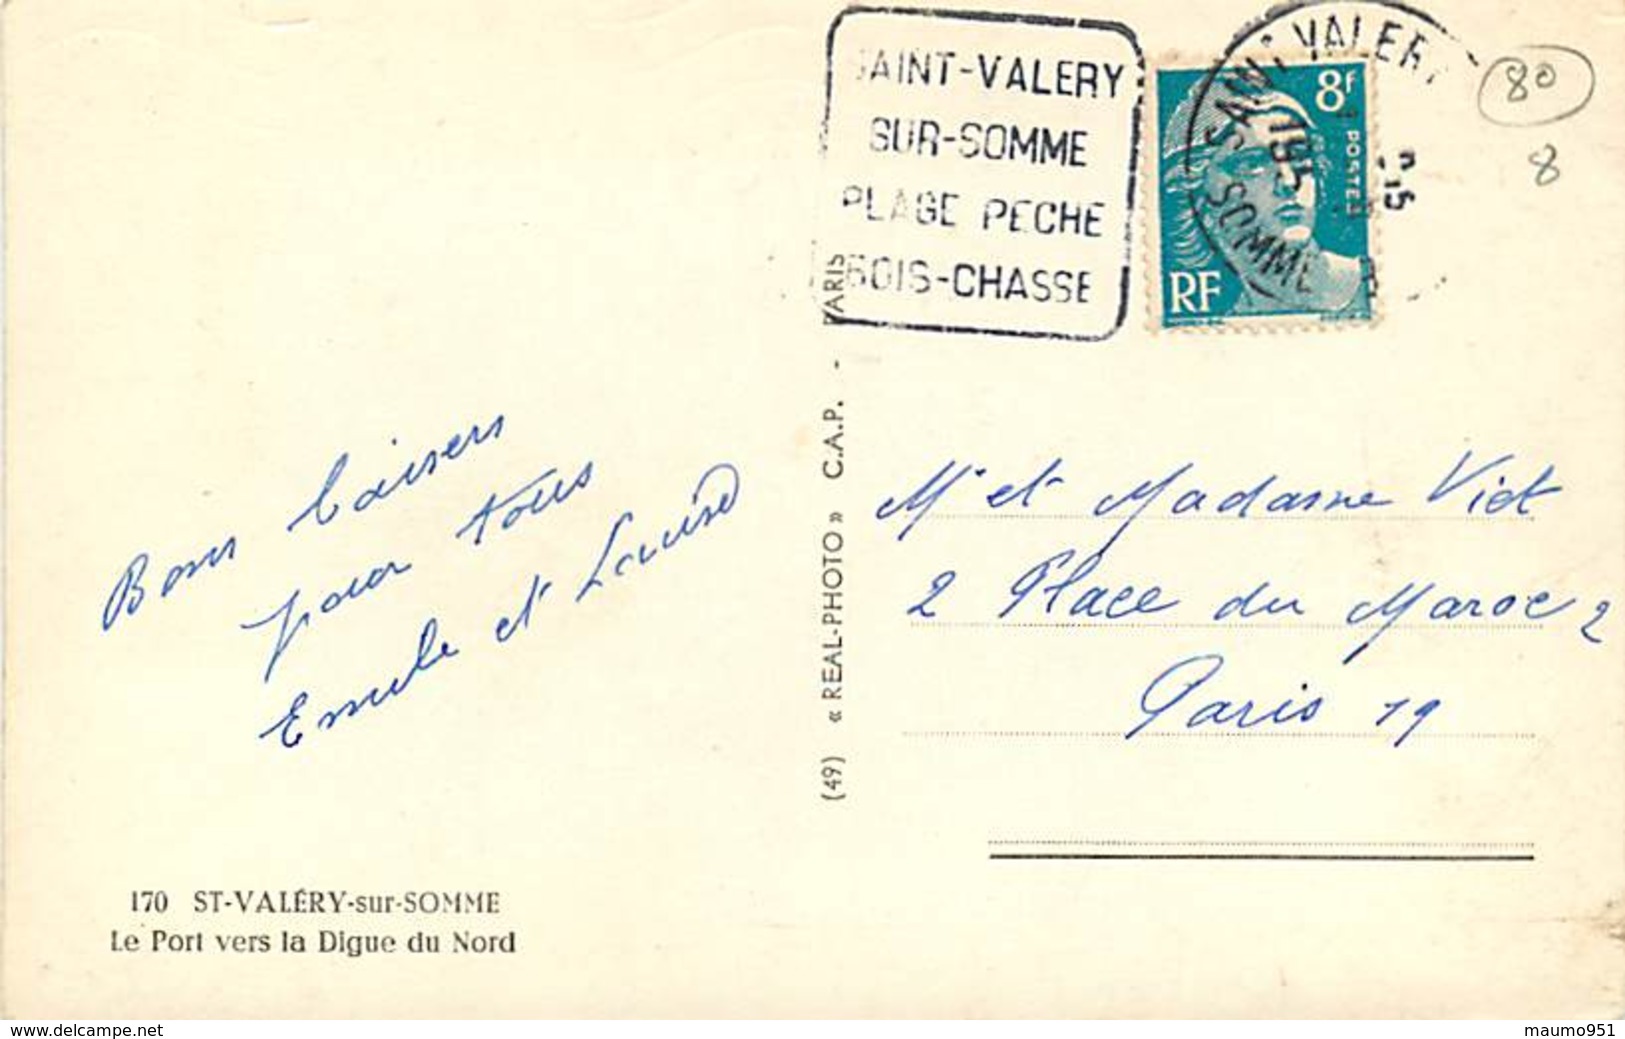 SAINT-VALERY
SUR-SOMME
PLAGE PECHE
BOIS-CHASSE
SAINT VALERY
SOMME
8f
POSTES
RF
80
8
Bons baisers
pour tous
Emile et Louise
(49) « REAL-PHOTO » C.A.P. - PARIS
Mr et Madame Viet
2 Place du Maroc 2
Paris 19
170 ST-VALÉRY-sur-SOMME
Le Port vers la Digue du Nord
www.delcampe.net
maumo951